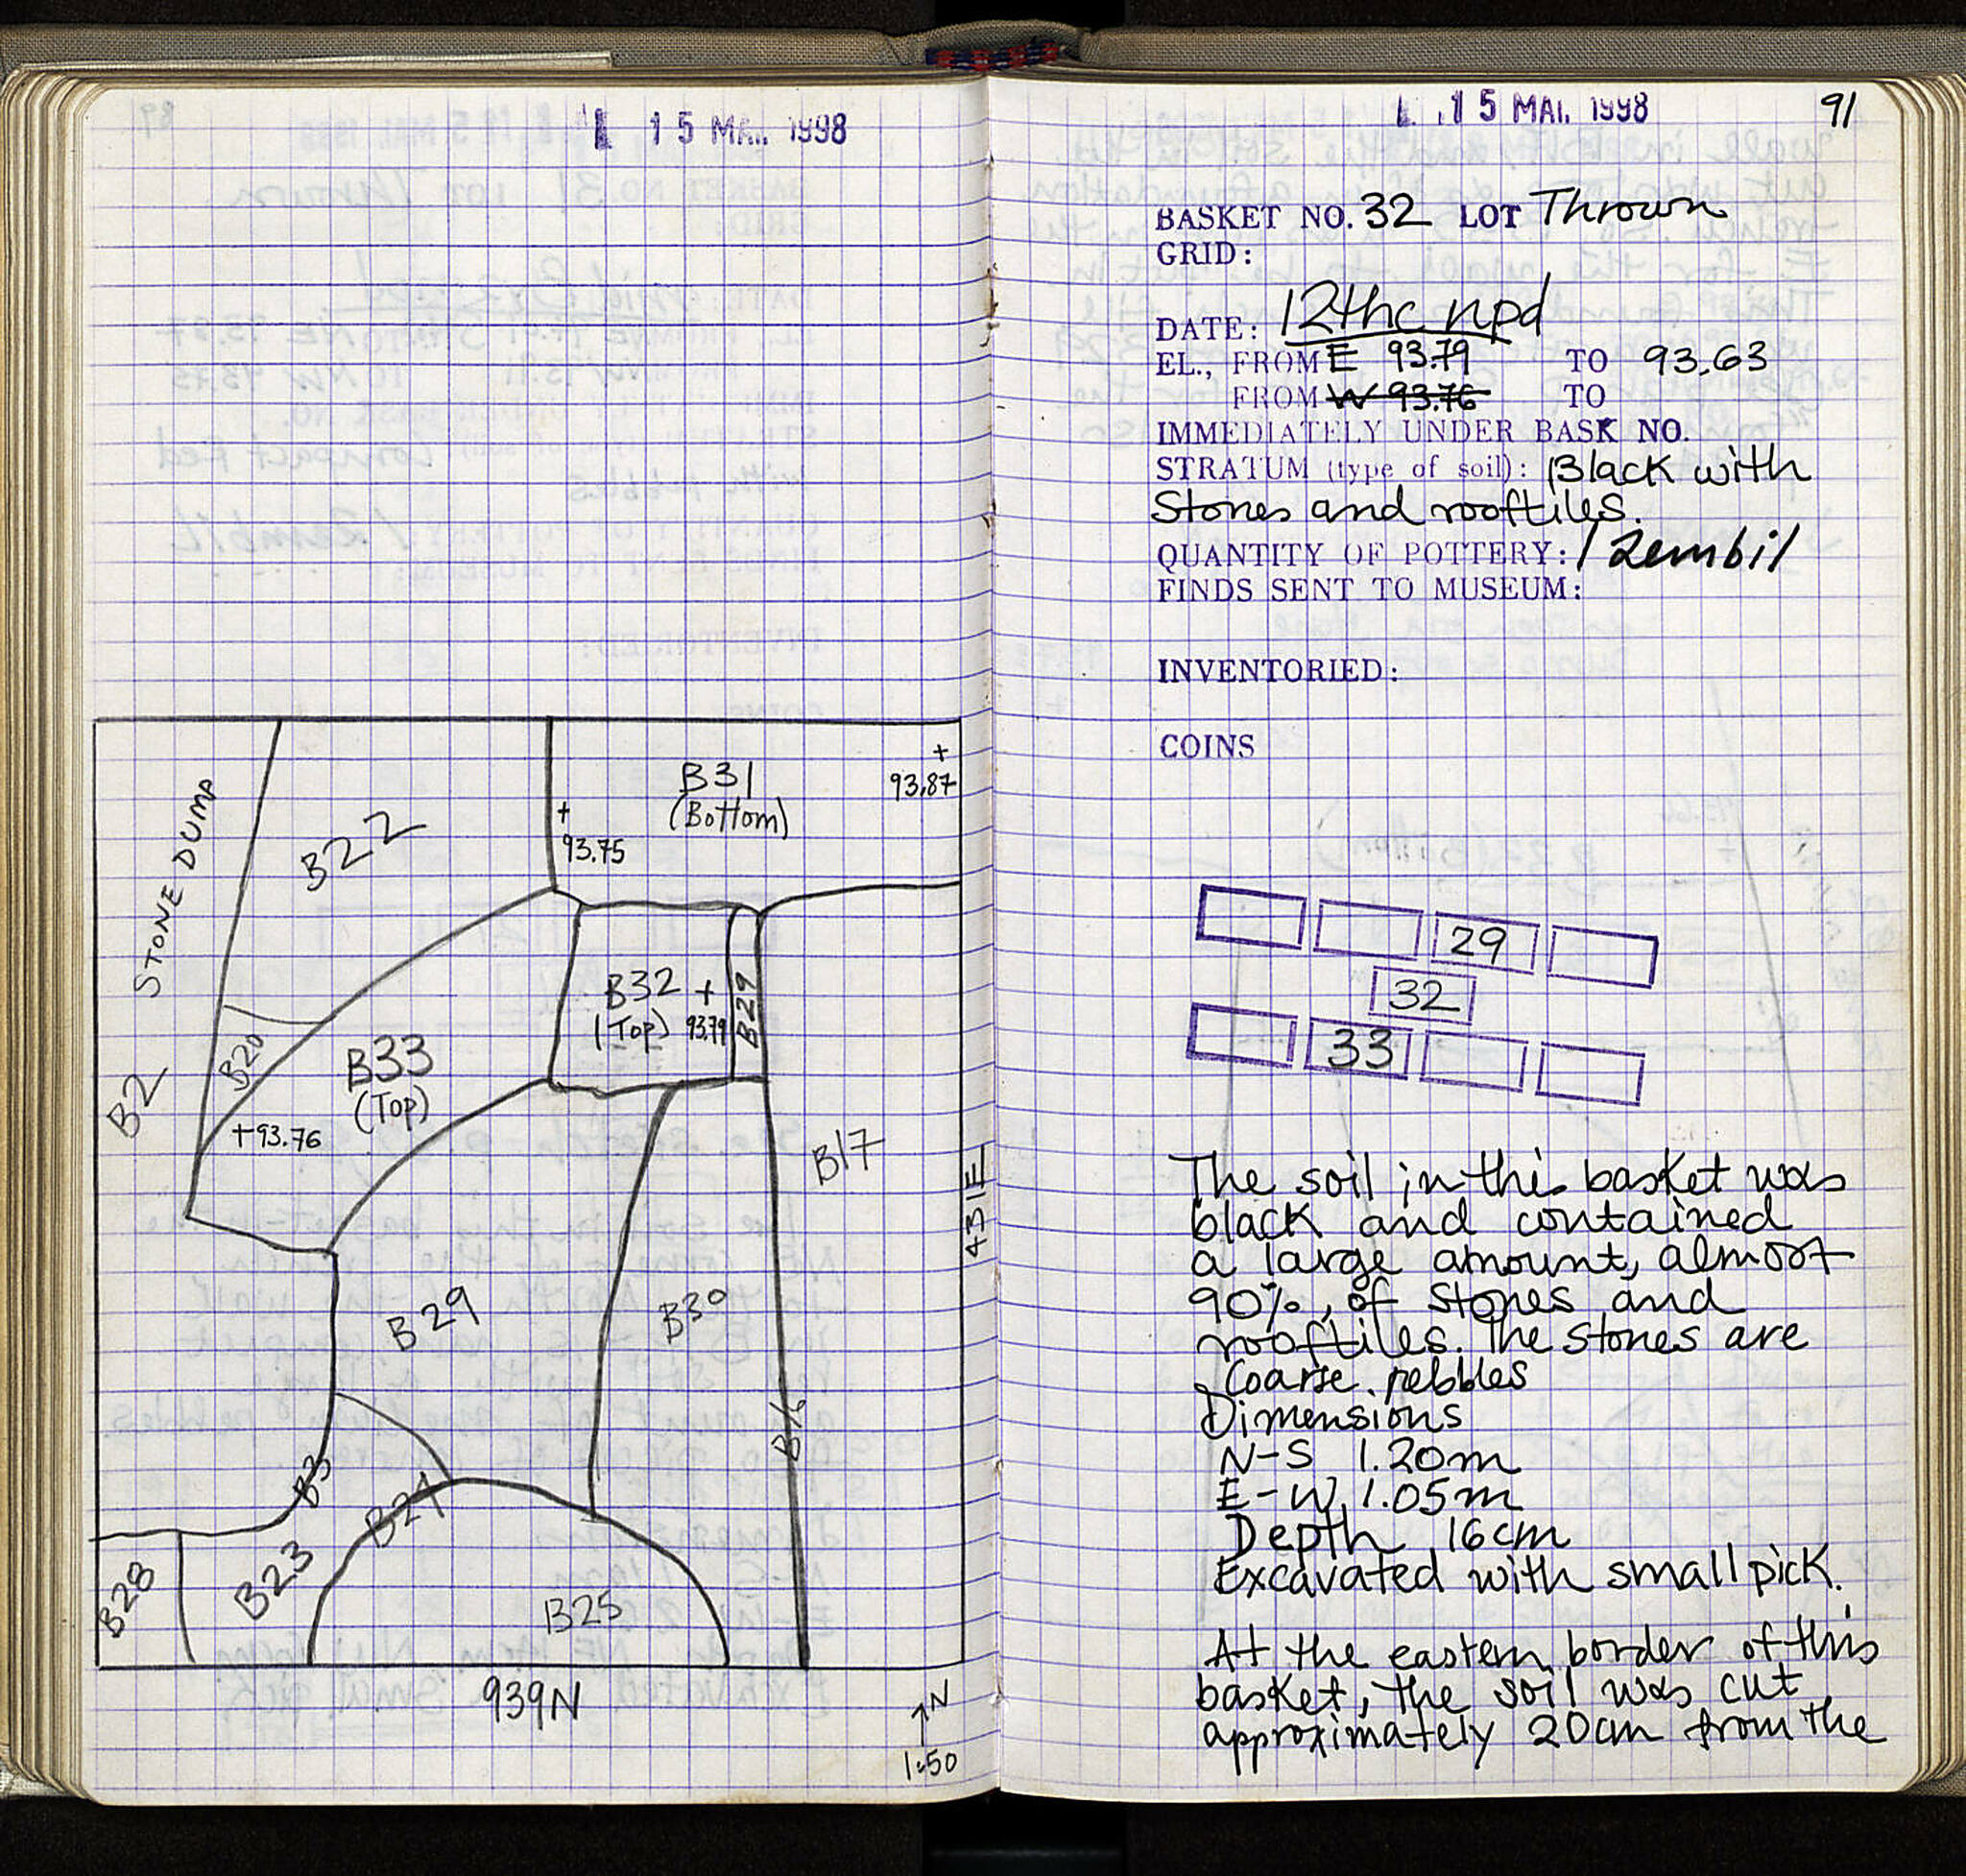 15 MAI. 1998
B31
(Bottom)
+
93.87
+
93.75
STONE DUMP
B22
B32 +
(Top) 93.79
B29
B20
B33
(Top)
+93.76
B2
B17
431E
B29
B30
B16
B3
B24
B28
B23
B25
939N
N
1:50
15 MAI. 1998
91
BASKET NO. 32 LOT Thrown
GRID:
DATE: 12thc npd
EL., FROM E 93.79 TO 93.63
FROM W 93.76 TO
IMMEDIATELY UNDER BASK NO.
STRATUM (type of soil): Black with
Stones and rooftiles.
QUANTITY OF POTTERY: 1 Zembil
FINDS SENT TO MUSEUM:
INVENTORIED:
COINS
29
32
33
The soil in this basket was
black and contained
a large amount, almost
90%, of stones and
rooftiles. The stones are
Coarse pebbles
Dimensions
N-S 1.20m
E-W 1.05m
Depth 16cm
Excavated with small pick.
At the eastern border of this
basket, the soil was cut
approximately 20cm from the